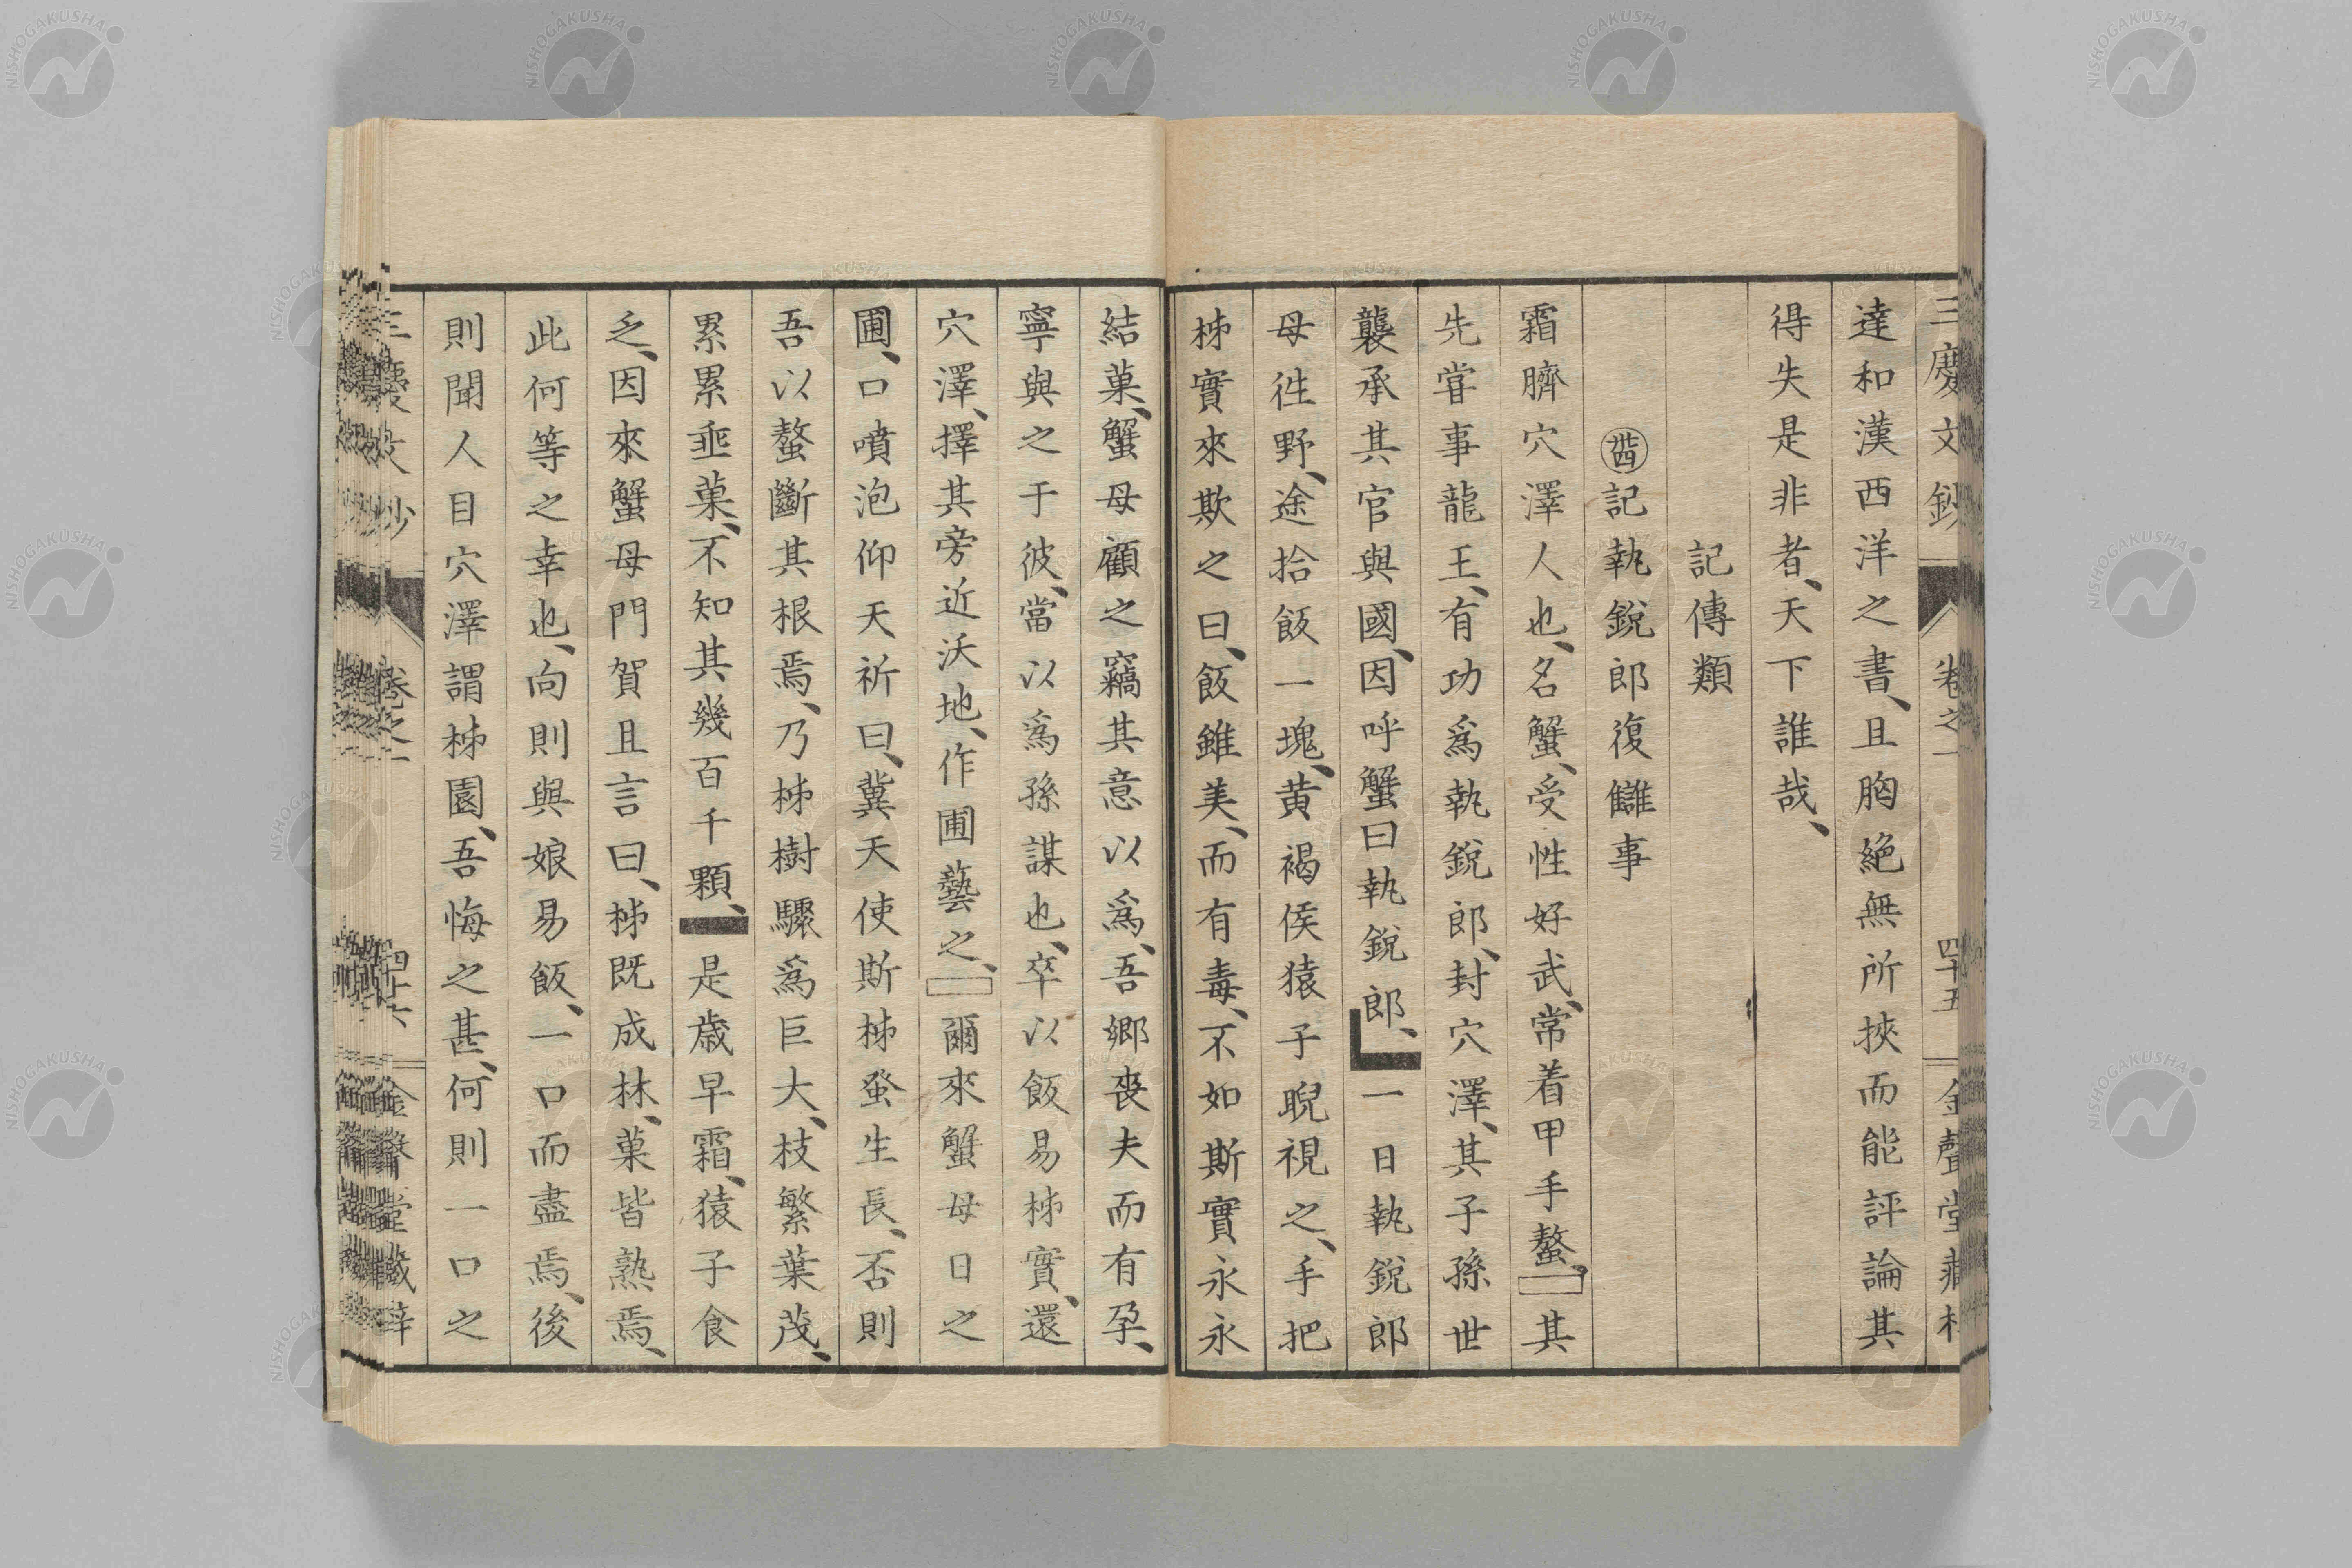 三慶文鈔 卷之一 四十五 金聲堂藏
達和漢西洋之書、且胸絕無所挾而能評論其
得失是非者、天下誰哉、
記傳類
記執銳郎復讎事
霜臍穴澤人也、名蟹、受性好武、常着甲手螯、其
先甞事龍王、有功爲執銳郎、封穴澤、其子孫世
襲承其官與國、因呼蟹曰執銳郎、一日執銳郎
母徃野、途拾飯一塊、黄褐侯猿子睨視之、手把
柹實來欺之曰、飯雖美、而有毒、不如斯實永永
結菓、蟹母顧之竊其意以爲、吾郷丧夫而有孕、
寧與之于彼、當以爲孫謀也、卒以飯易柹實、還
穴澤、擇其旁近沃地、作圃藝之、爾來蟹母日之
圃、口噴泡仰天祈曰、冀天使斯柹發生長、否則
吾以螯斷其根焉、乃柹樹驟爲巨大、枝繁葉茂、
累累垂菓、不知其幾百千顆、是歳早霜、猿子食
乏、因來蟹母門賀且言曰、柹既成林、菓皆熟焉、
此何等之幸也、向則與娘易飯、一口而盡焉、後
則聞人目穴澤謂柹園、吾悔之甚、何則一口之
三慶文鈔 卷之一 四十六 金聲堂藏
NISHOGAKUSHA